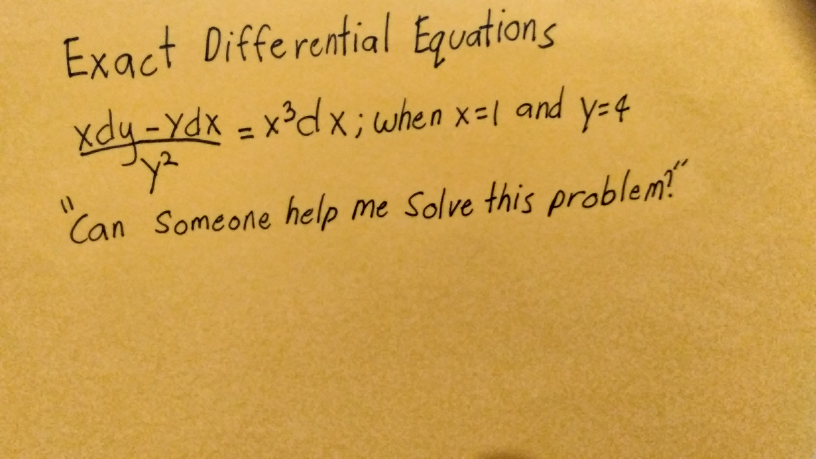 Exact Differential Equations
xdy - ydx / y² = x³dx; when x=1 and y=4
"Can Someone help me Solve this problem?"